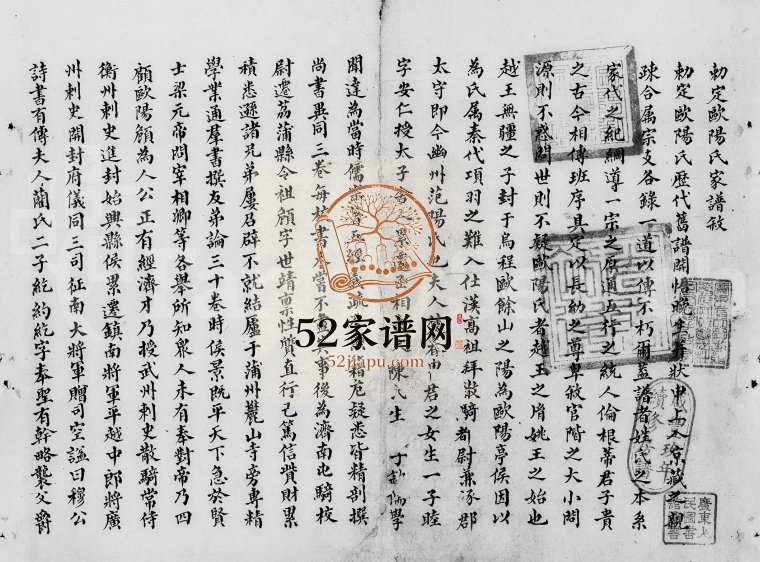 勅定歐陽氏家譜敘
勅定歐陽氏歷代舊譜開
疎合属宗支各錄一道以傳不朽爾蓋譜者姓氏之本系
家代之紀綱導一宗之原通五行之統人倫根蒂君子貴
之古今相傳班序具足以長幼之尊卑敘官階之大小問
源則不惑問世則不疑歐陽氏者越王之裔姚王之始也
越王無疆之子封于烏程歐餘山之陽為歐陽亭侯因以
為氏属秦代項羽之難入仕漢髙祖拜散騎都尉兼涿郡
太守即今幽州范陽氏也夫人君之女生一子睦
字安仁授太子陳氏生學
聞達為當時儒疑悉皆精剖撰
尚書異同三卷每後為濟南北騎校
尉遷荔蒲縣令祖頠字世靖禀性質直行己篤信貲財累
積悉遜諸兄弟屢召辟不就結廬于蒲州麓山寺旁專精
學業通羣書撰友弟論三十卷時侯景既平天下急於賢
士梁元帝問宰相卿等各舉所知衆人未有奉對帝乃四
顧歐陽頠為人公正有經濟才乃授武州刺史散騎常侍
衡州刺史進封始興縣侯累遷鎮南將軍平越中郎將廣
州刺史開封府儀同三司征南大將軍贈司空謚曰穆公
詩書有傳夫人蘭氏二子紇約紇字奉聖有幹略襲父爵
52家谱网
52jiapu.com